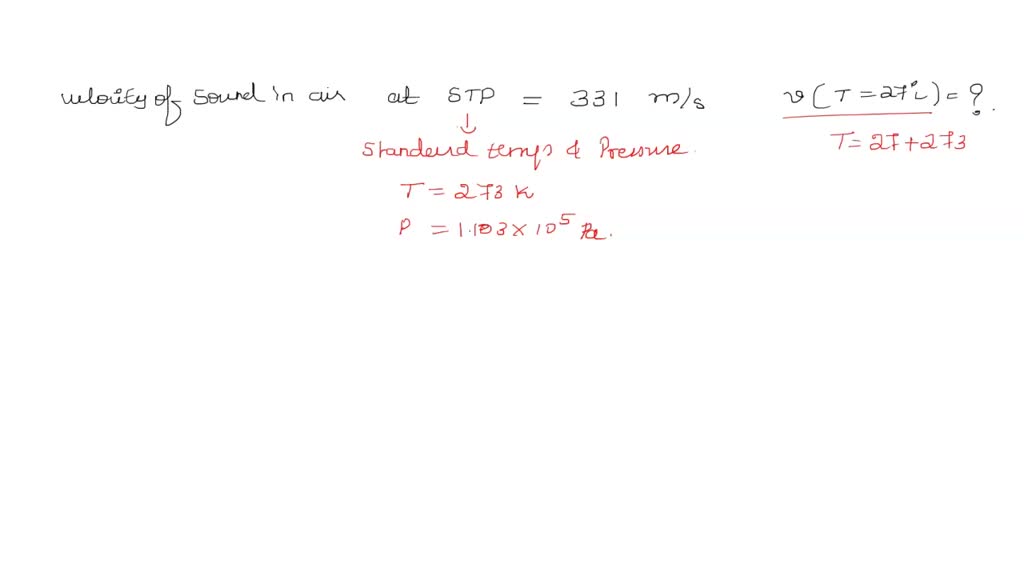 velocity of sound in air at STP = 331 m/s v(T=27°C) = ?.
↓
Standerd temp & Pressure.
T = 27+273
T = 273 K
P = 1.103 × 10⁵ Pa.